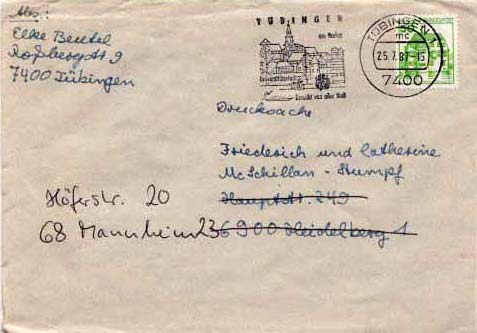 Abs.:
Elke Beutel
Roßbergstr 9
7400 Tübingen
TÜBINGEN
am Neckar
Universitätsstadt
besucht von aller Welt
TÜBINGEN 1
mc
25.7.87-15
7400
Drucksache
Friederich und Catherine
McSchillan-Stumpf
Hauptstr. 249
6900 Heidelberg 1
Höferstr. 20
68 Mannheim 23